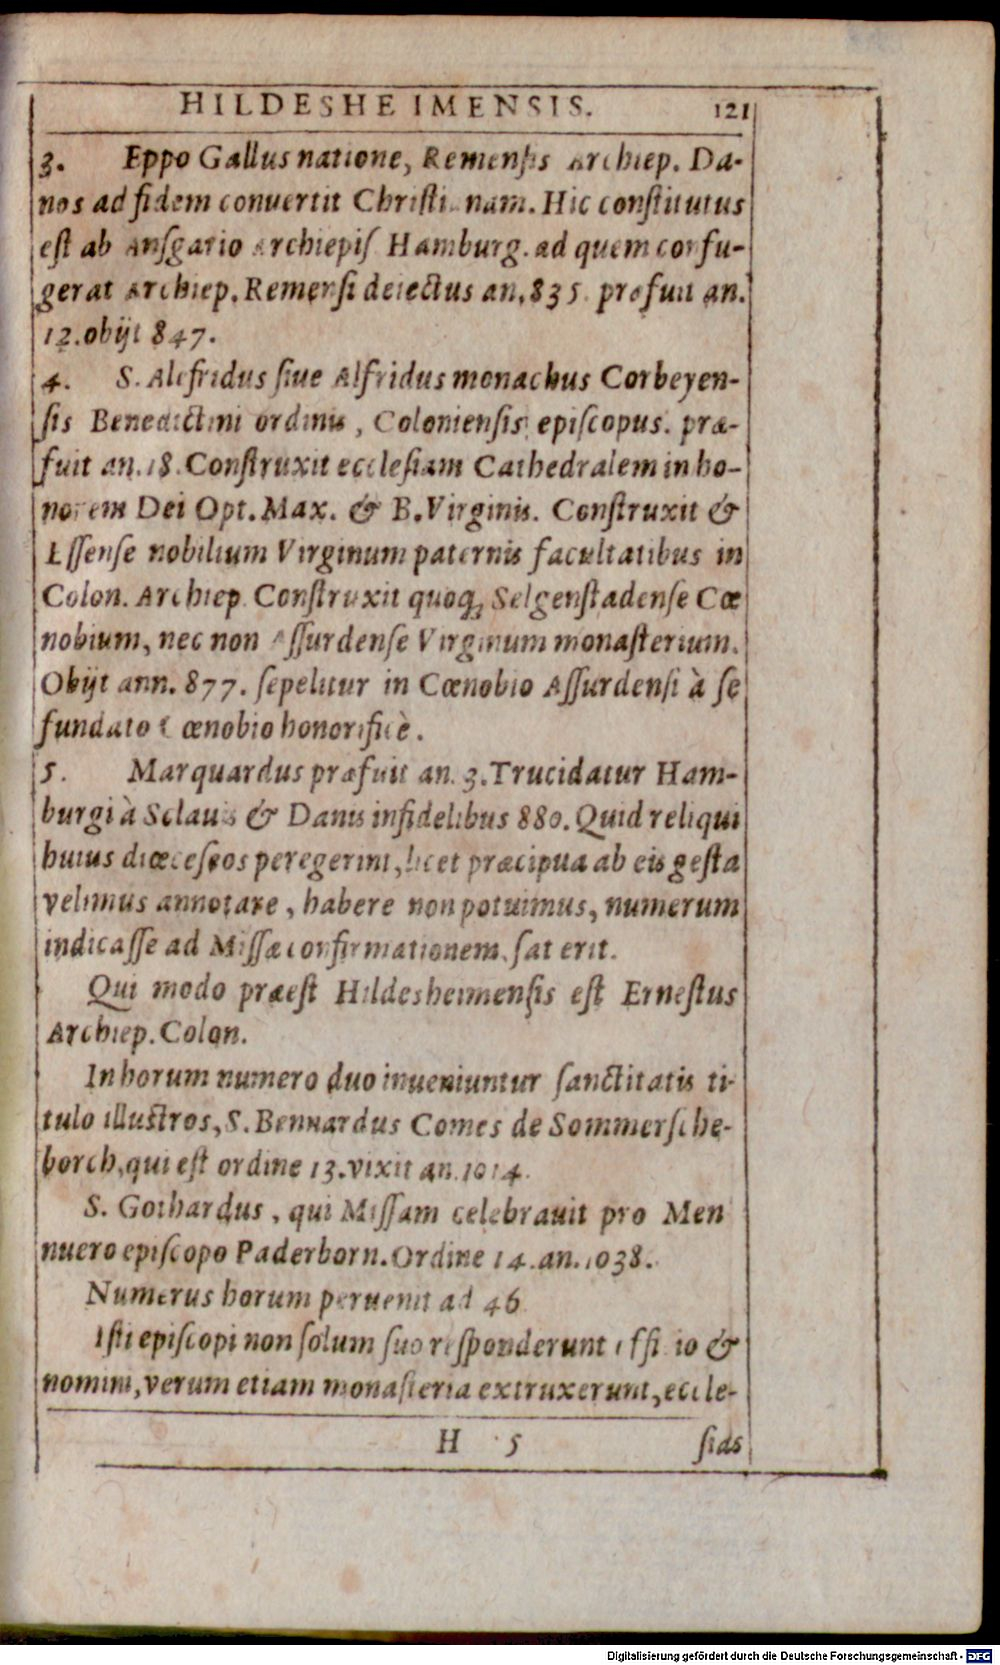 HILDESHEIMENSIS. 121
3. Eppo Gallus natione, Remensis Archiep. Da-
nos ad fidem conuertit Christianam. Hic constitutus
est ab Ansgario Archiepis. Hamburg. ad quem confu-
gerat Archiep. Remensi deiectus an. 835. præfuit an.
12. obijt 847.
4. S. Alefridus siue Alfridus monachus Corbeyen-
sis Benedictini ordinis, Coloniensis episcopus. præ-
fuit an. 18. Construxit ecclesiam Cathedralem in ho-
norem Dei Opt. Max. & B. Virginis. Construxit &
Essense nobilium Virginum paternis facultatibus in
Colon. Archiep. Construxit quoq; Selgenstadense Cœ
nobium, nec non Assurdense Virginum monasterium.
Obijt ann. 877. sepelitur in Cœnobio Assurdensi à se
fundato Cœnobio honorificè.
5. Marquardus præfuit an. 3. Trucidatur Ham-
burgi à Sclauis & Danis infidelibus 880. Quid reliqui
huius diœceseos peregerint, licet præcipua ab eis gesta
velimus annotare, habere non potuimus, numerum
indicasse ad Missæ confirmationem, sat erit.
Qui modo præest Hildesheimensis est Ernestus
Archiep. Colon.
In horum numero duo inueniuntur sanctitatis ti-
tulo illustros, S. Bennardus Comes de Sommersche-
borch, qui est ordine 13. vixit an. 1014.
S. Gothardus, qui Missam celebrauit pro Men
nuero episcopo Paderborn. Ordine 14. an. 1038.
Numerus horum peruenit ad 46
Isti episcopi non solum suo responderunt officio &
nomini, verum etiam monasteria extruxerunt, eccle-
H 5 sias
Digitalisierung gefördert durch die Deutsche Forschungsgemeinschaft - DFG